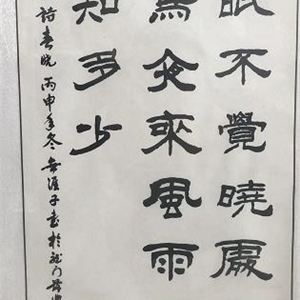 眠不覺曉處
鳥夜來風雨
知多少
詩春曉 丙申年冬 無涯子書於龍門